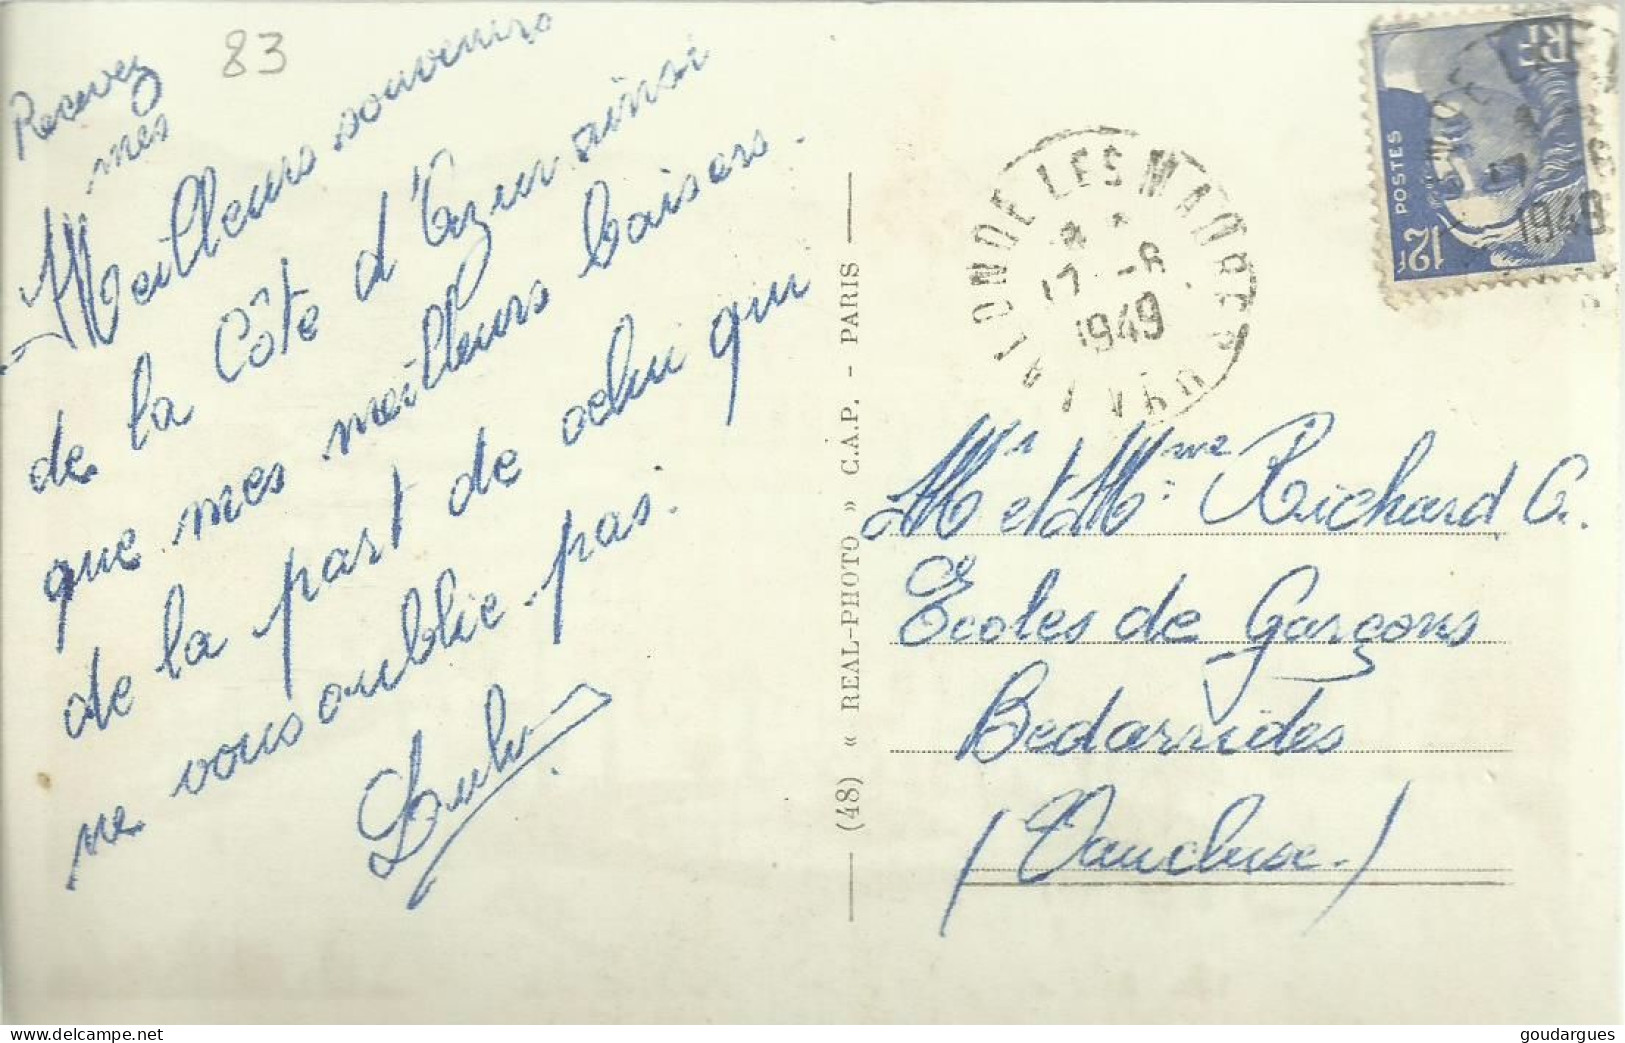 83
Recevez
mes
Meilleurs souvenirs
de la Côte d'Azur ainsi
que mes meilleurs baisers.
de la part de celui qui
ne vous oublie pas.
(48) « REAL-PHOTO » C.A.P. - PARIS
LA LONDE LES MAURES
17 -6
1949
VAR
RF
POSTES
12F
1949
Mr et Mme Richard G.
Ecoles de Garçons
Bedarrides
(Vaucluse.)
www.delcampe.net
goudargues